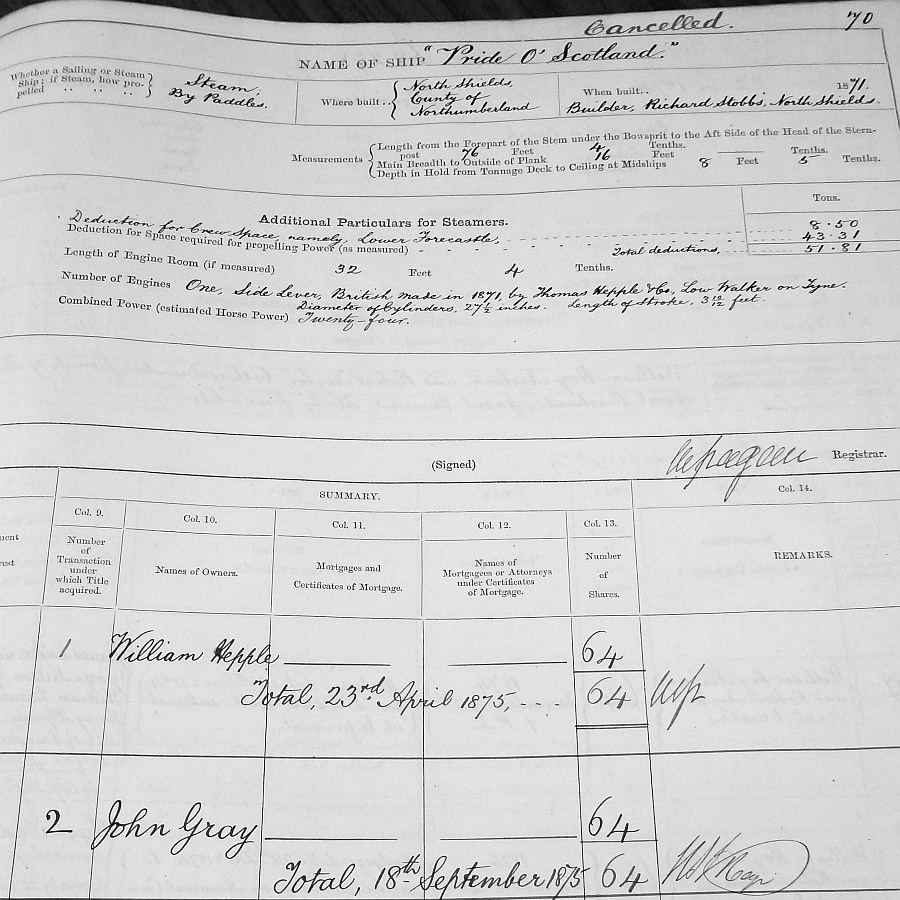 Cancelled. 70
NAME OF SHIP "Pride O' Scotland."
Whether a Sailing or Steam Ship; if Steam, how propelled .. .. .. Steam; By Paddles.
Where built .. North Shields, County of Northumberland
When built .. 1871.
Builder, Richard Stobbs, North Shields.
Measurements
Length from the Forepart of the Stem under the Bowsprit to the Aft Side of the Head of the Stern-
post 76 Feet 4 Tenths.
Main Breadth to Outside of Plank 16 Feet Tenths.
Depth in Hold from Tonnage Deck to Ceiling at Midships 8 Feet 5 Tenths.
Additional Particulars for Steamers. Tons.
Deduction for Crew Space, namely, Lower Forecastle, 8.50
Deduction for Space required for propelling Power (as measured) - 43.31
Total deductions, 51.81
Length of Engine Room (if measured) 32 Feet 4 Tenths.
Number of Engines One, Side Lever, British made in 1871, by Thomas Hepple & Co, Low Walker on Tyne.
Diameter of Cylinders, 27½ inches. Length of Stroke, 3 10/12 feet.
Combined Power (estimated Horse Power) Twenty-four.
(Signed) Registrar.
SUMMARY.
Col. 9. Col. 10. Col. 11. Col. 12. Col. 13. Col. 14.
Number of Transaction under which Title acquired.
Names of Owners.
Mortgages and Certificates of Mortgage.
Names of Mortgagees or Attorneys under Certificates of Mortgage.
Number of Shares.
REMARKS.
1 William Hepple 64
Total, 23rd April 1875, 64
2 John Gray 64
Total, 18th September 1875 64